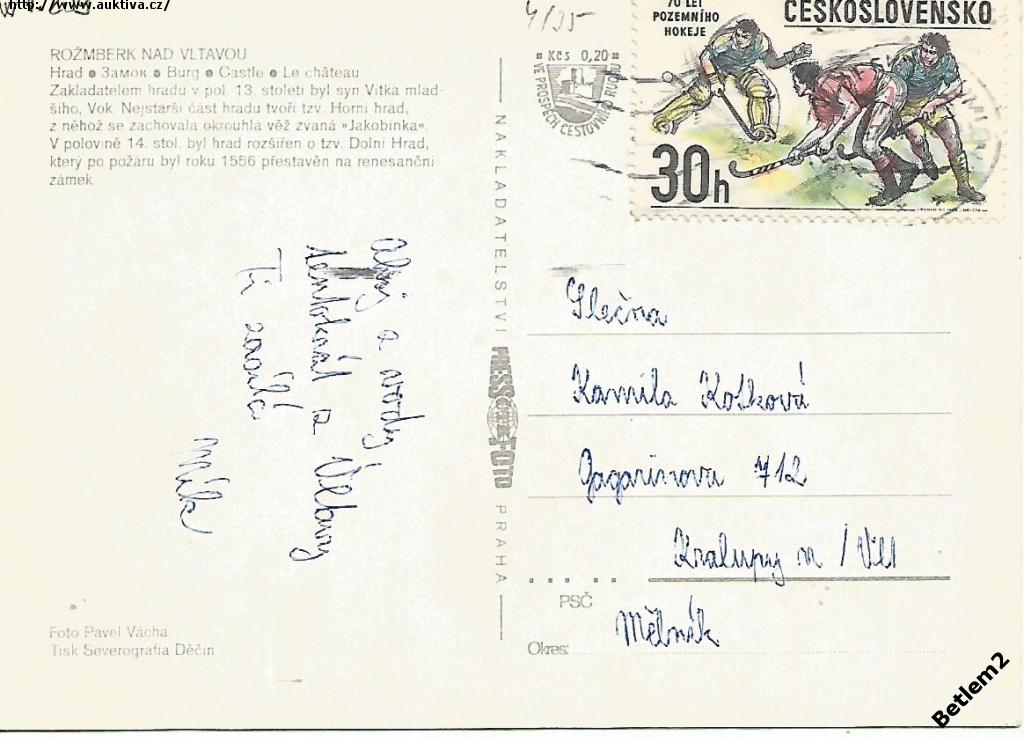 http://www.auktiva.cz/
4/25
ROŽMBERK NAD VLTAVOU
Hrad ● Замок ● Burg ● Castle ● Le château
Zakladatelem hradu v pol. 13. století byl syn Vítka mlad-
šího, Vok. Nejstarší část hradu tvoří tzv. Horní hrad,
z něhož se zachovala okrouhlá věž zvaná »Jakobínka«.
V polovině 14. stol. byl hrad rozšířen o tzv. Dolní Hrad,
který po požáru byl roku 1556 přestavěn na renesanční
zámek.
Ahoj z vody
tentokrát z Vltavy
Ti zasílá
Mík
Foto Pavel Vácha
Tisk Severografia Děčín
NAKLADATELSTVÍ PRESSFOTO PRAHA
Kčs 0,20
VE PROSPĚCH CESTOVNÍHO RUCHU
70 LET
POZEMNÍHO
HOKEJE
ČESKOSLOVENSKO
30h
Slečna
Kamila Kolková
Gagarinova 712
Kralupy n/Vlt
PSČ
Mělník
Okres:
Betlem2